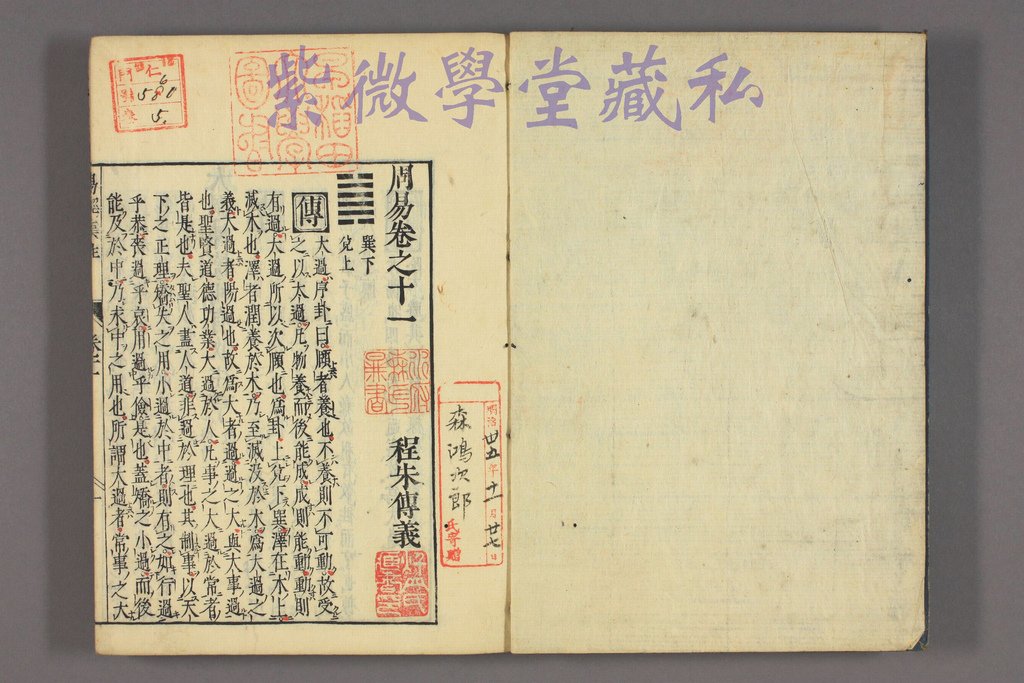 紫微學堂藏私
仁
6
580
5.
周易卷之十一
程朱傳義
巽下
兌上
傳
大過序卦曰頤者養也不養則不可動故受
之以大過凡物養而後能成成則能動動則
有過大過所以次頤也爲卦上兌下巽澤在木上
滅木也澤者潤養於木乃至滅沒於木爲大過之
義大過者陽過也故爲大者過過之大與大事過
也聖賢道德功業大過於人凡事之大過於常者
皆是也夫聖人盡人道非過於理也其制事以天
下之正理矯失之用小過於中者則有之如行過
乎恭喪過乎哀用過乎儉是也蓋矯之小過而後
能及於中乃求中之用也所謂大過者常事之大
明治四五年十一月廿七日
森鴻次郎
氏寄贈